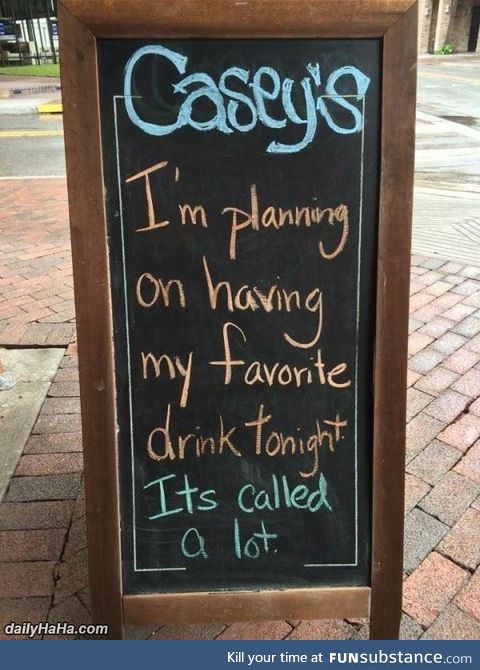 Casey's
I'm planning
on having
my favorite
drink tonight.
Its called
a lot.
dailyHaHa.com
Kill your time at FUNsubstance.com